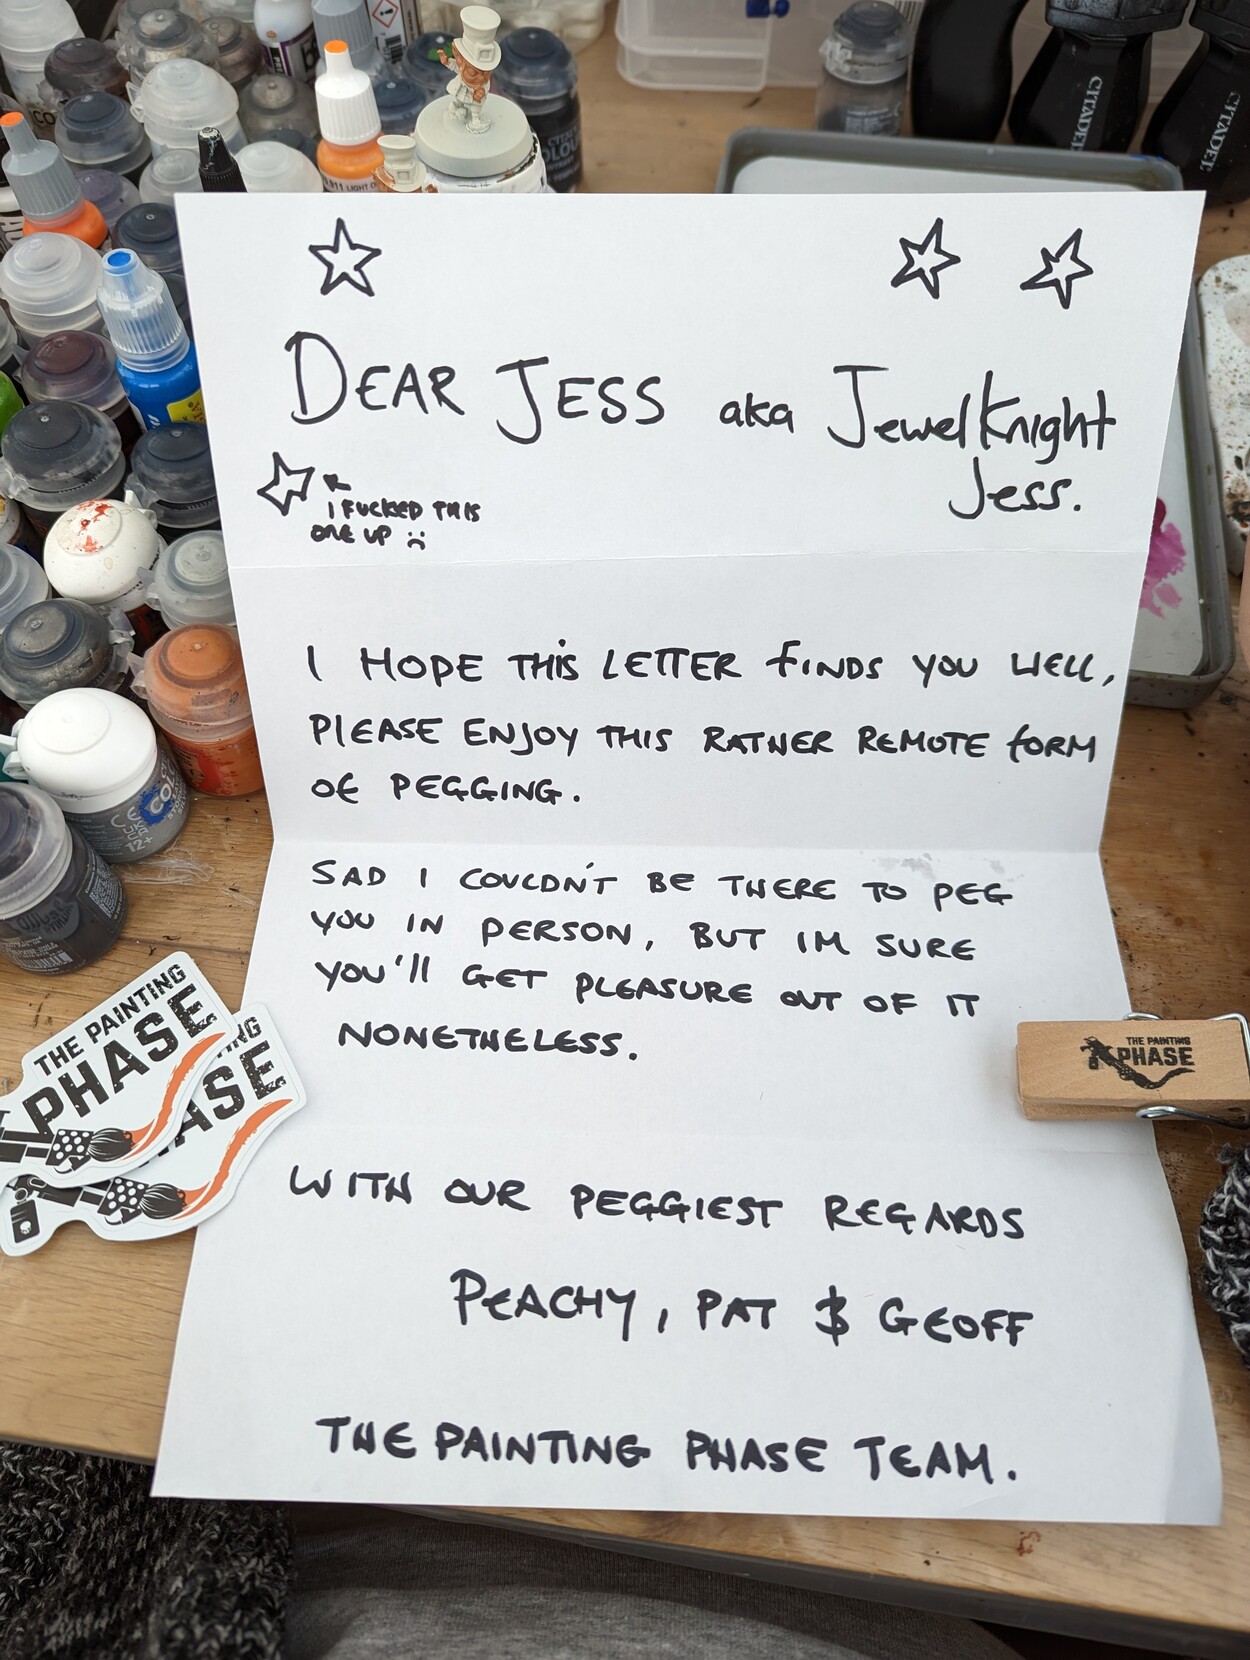 DEAR JESS aka JewelKnight
Jess.
I FUCKED THIS
ONE UP :(
I HOPE THIS LETTER FINDS YOU WELL,
PLEASE ENJOY THIS RATHER REMOTE FORM
OF PEGGING.
SAD I COULDN'T BE THERE TO PEG
YOU IN PERSON, BUT IM SURE
YOU'll GET PLEASURE OUT OF IT
NONETHELESS.
WITH OUR PEGGIEST REGARDS
PEACHY, PAT & GEOFF
THE PAINTING PHASE TEAM.
THE PAINTING
PHASE
ING
ASE
THE PAINTING
PHASE
CITADEL
CITADEL
12+